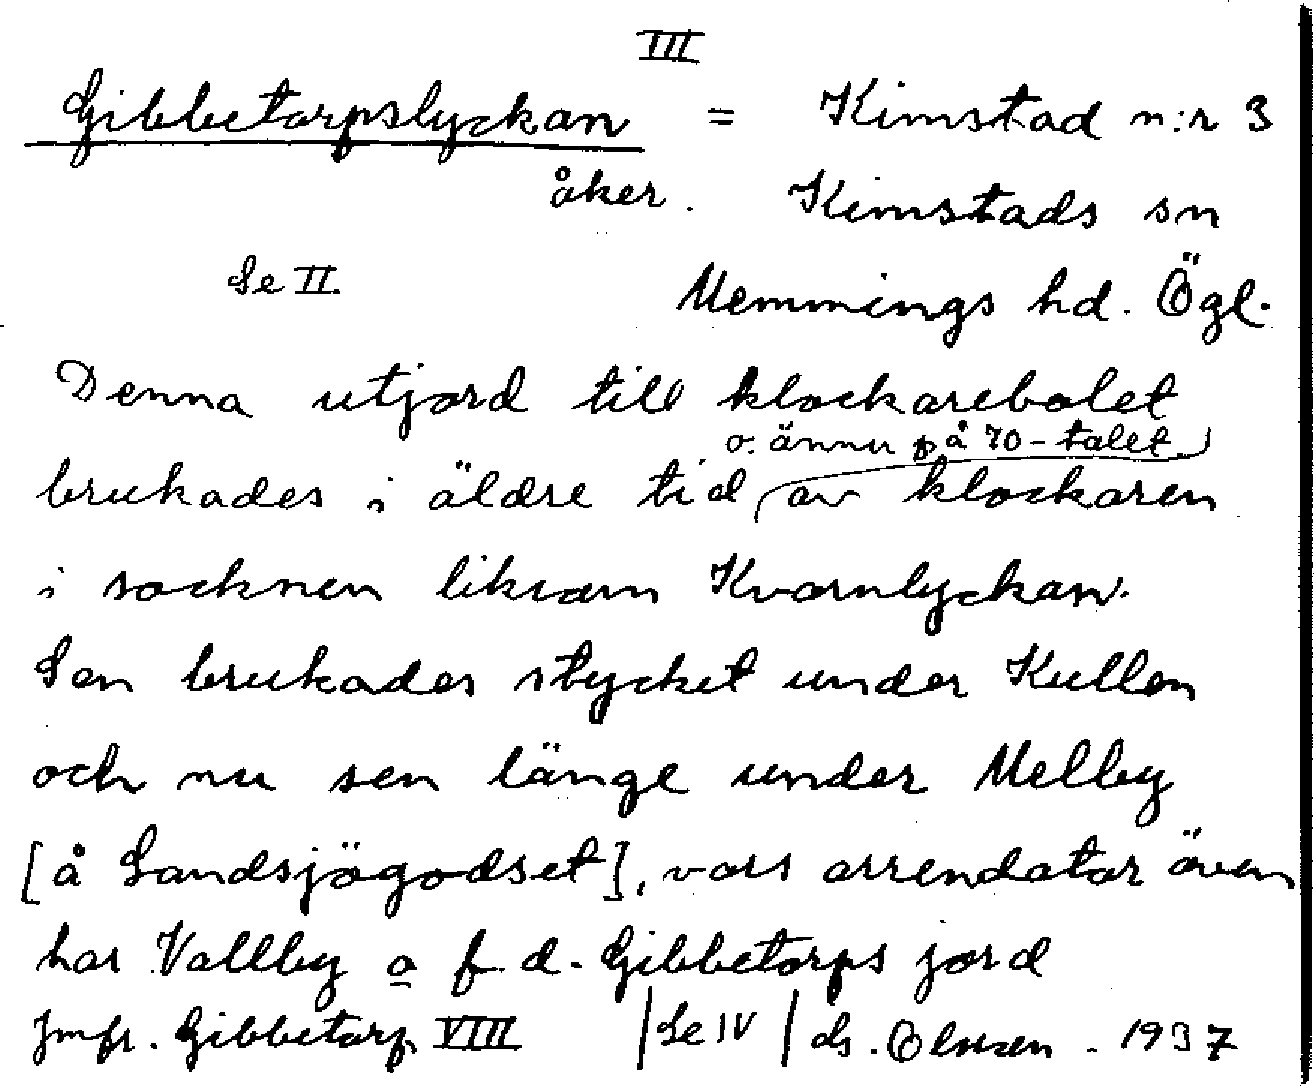 III
Gibbetorpslyckan = Kimstad n:r 3
åker. Kimstads sn
Se II. Memmings hd. Ögl.
Denna utjord till klockarebolet
o. ännu på 70-talet
brukades i äldre tid av klockaren
i socknen liksom Kvarnlyckan.
Sen brukades stycket under Kullen
och nu sen länge under Melby
[å Landsjögodset], vars arrendator även
har Vallby o f. d. Gibbetorps jord
Jmfr. Gibbetorp VIII |Se IV| ds. Olsson - 1937